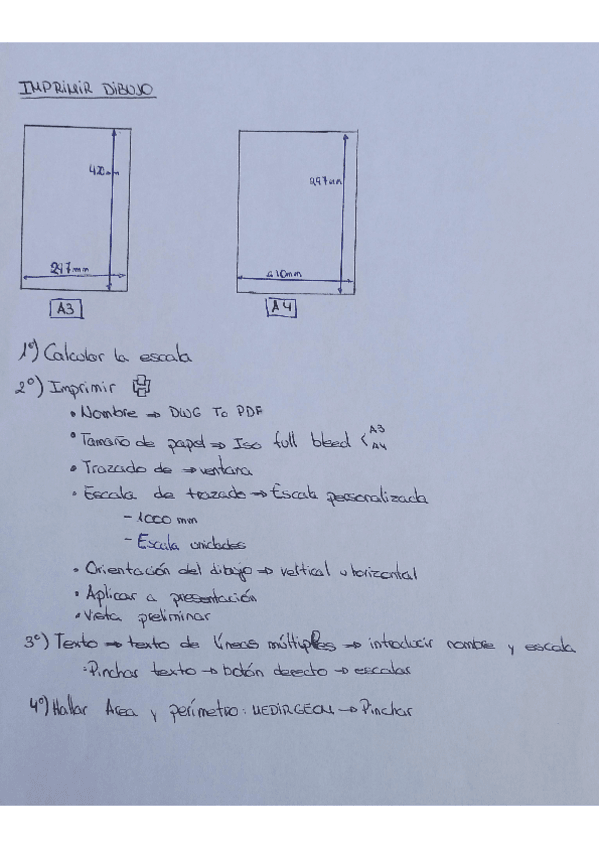 IMPRIMIR DIBUJO
420mm
297mm
A3
297mm
210mm
A4
1º) Calcular la escala
2º) Imprimir
• Nombre → DWG To PDF
• Tamaño de papel → Iso full bleed < A3 A4
• Trazado de → ventana
• Escala de trazado → Escala personalizada
- 1000 mm
- Escala unidades
• Orientación del dibujo → vertical u horizontal
• Aplicar a presentación
• Vista preliminar
3º) Texto → texto de líneas múltiples → introducir nombre y escala
• Pinchar texto → botón derecto → escalar
4º) Hallar Area y perímetro: MEDIRGEOM → Pinchar